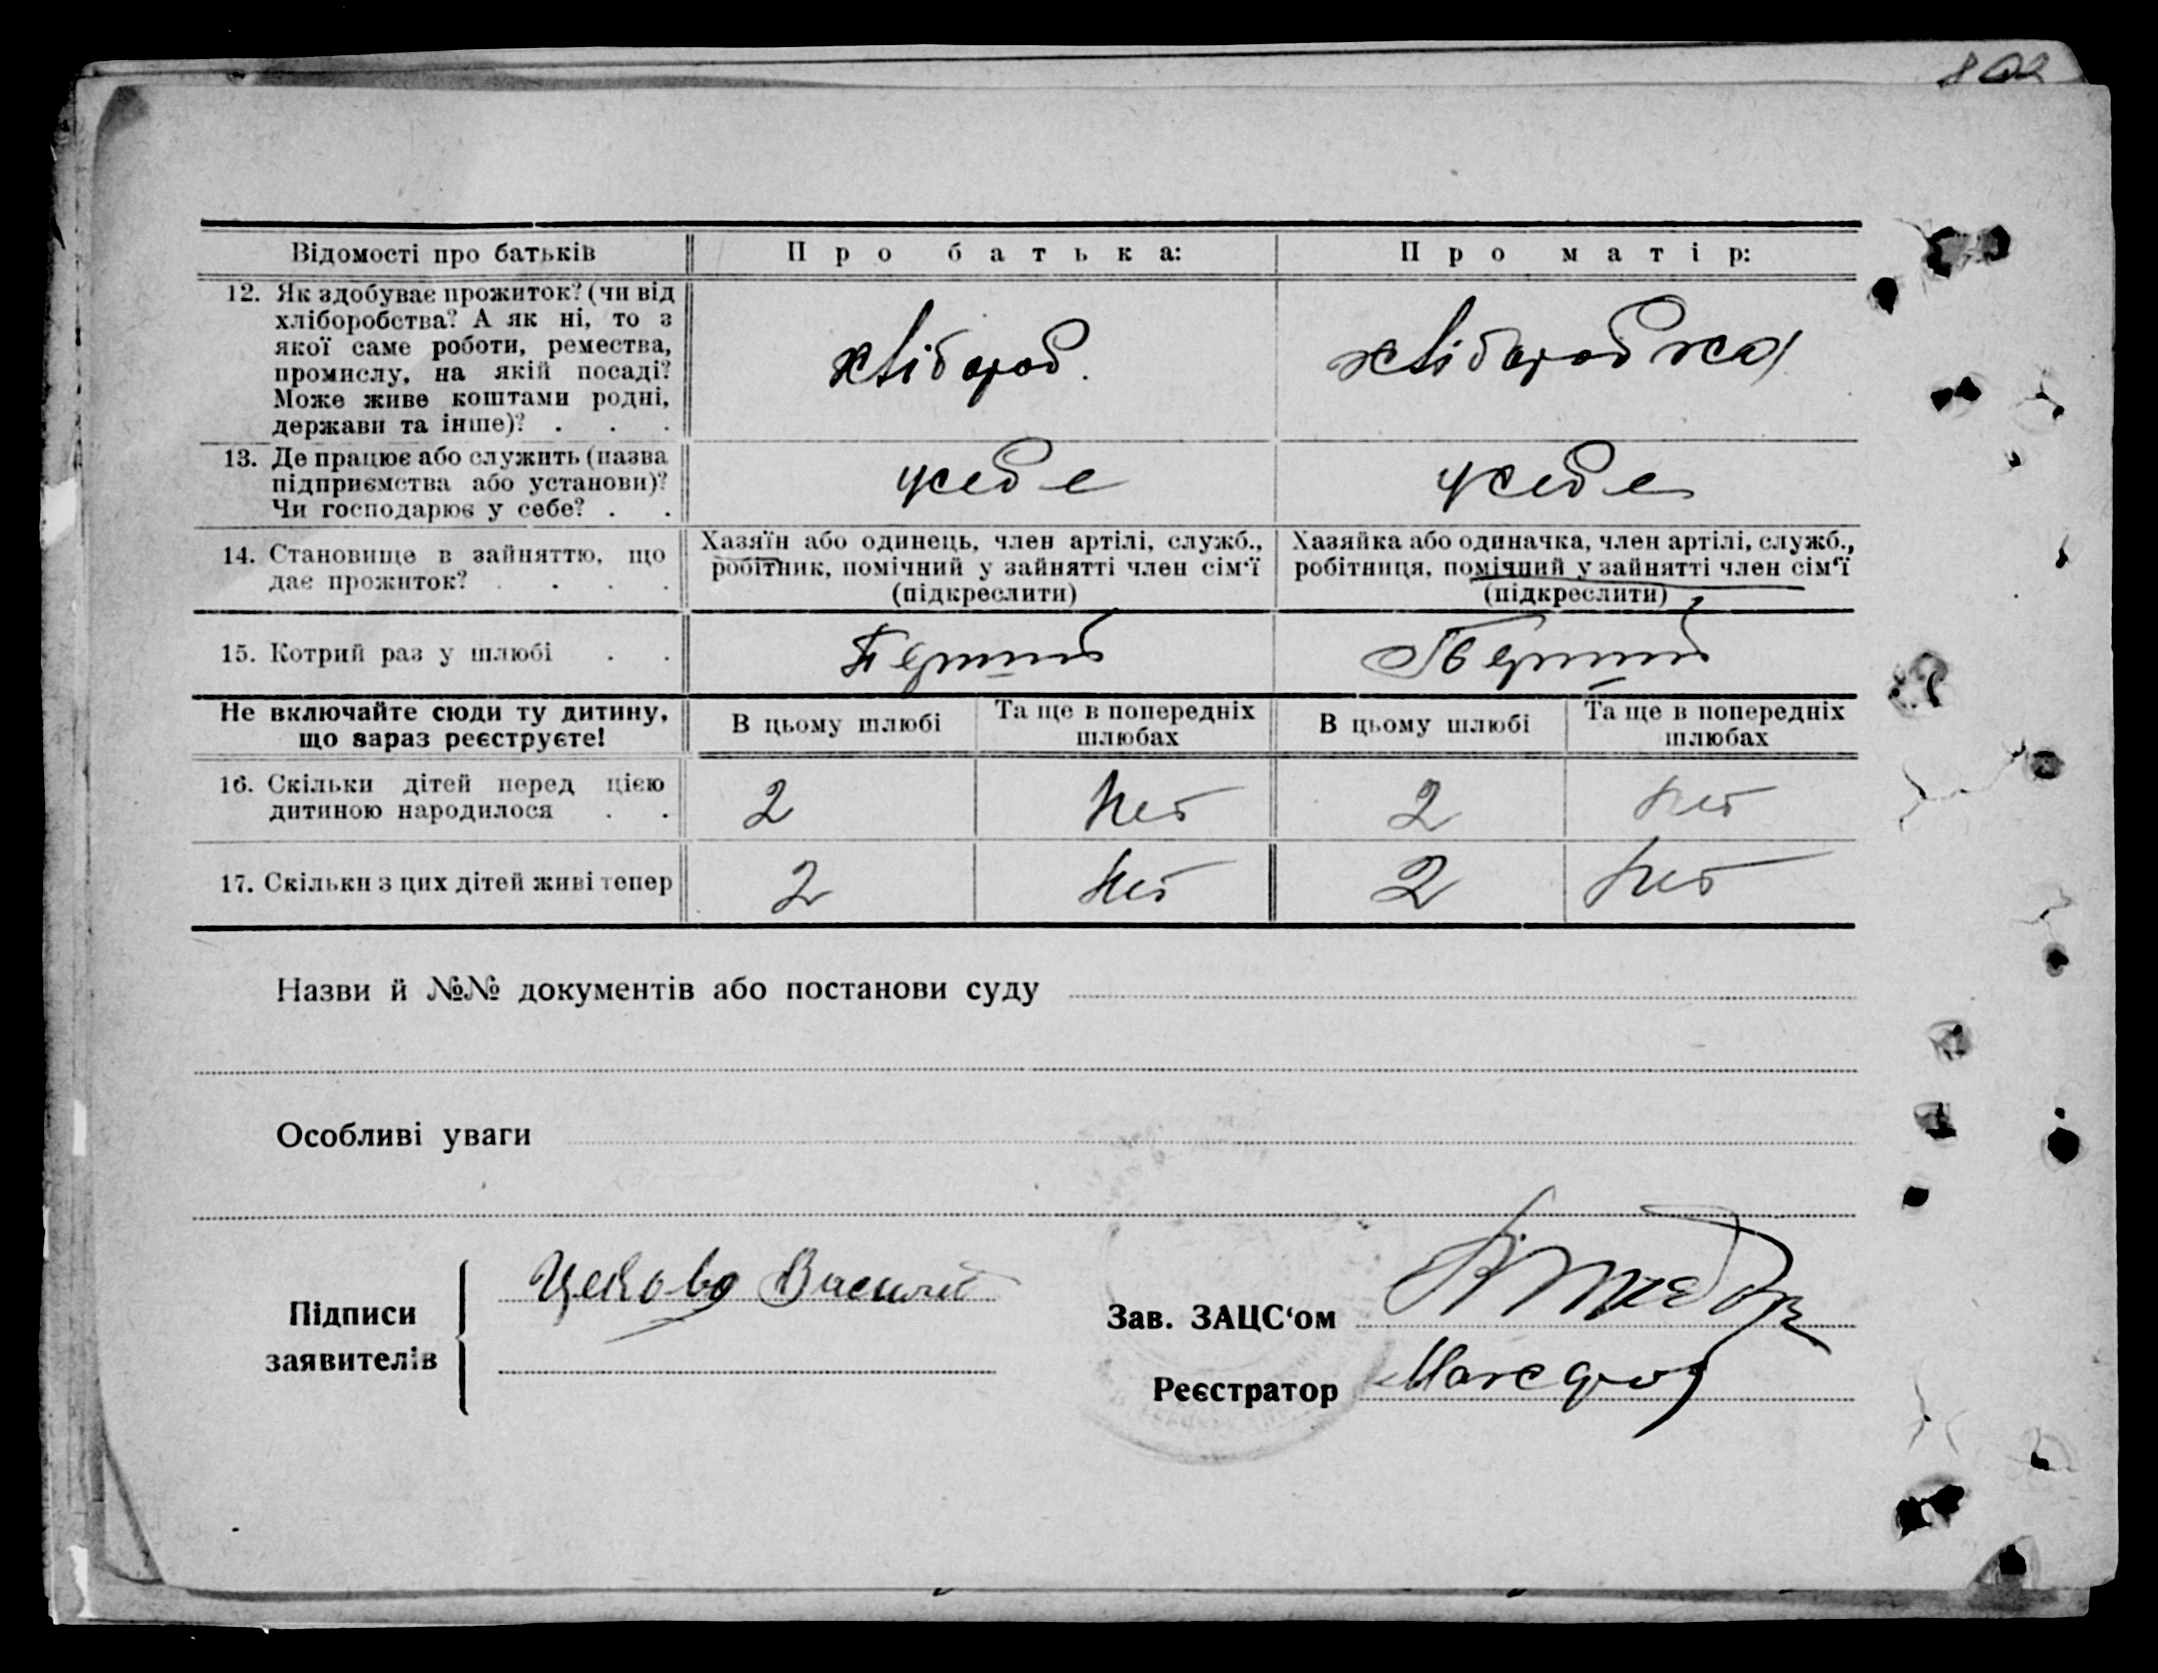 802
Відомості про батьків
Про батька:
Про матір:
12. Як здобуває прожиток? (чи від
хліборобства? А як ні, то з
якої саме роботи, ремества,
промислу, на якій посаді?
Може живе коштами родні,
держави та інше)? . . .
хлібороб.
хліборобка
13. Де працює або служить (назва
підприємства або установи)?
Чи господарює у себе? . .
у себе
у себе
14. Становище в зайняттю, що
дає прожиток? . . . .
Хазяїн або одинець, член артілі, служб.,
робітник, помічний у зайнятті член сім'ї
(підкреслити)
Хазяйка або одиначка, член артілі, служб.,
робітниця, помічний у зайнятті член сім'ї
(підкреслити)
15. Котрий раз у шлюбі . .
Перший
Перший
Не включайте сюди ту дитину,
що зараз реєструєте!
В цьому шлюбі
Та ще в попередніх
шлюбах
В цьому шлюбі
Та ще в попередніх
шлюбах
16. Скільки дітей перед цією
дитиною народилося . .
2
Нет
2
Нет
17. Скільки з цих дітей живі тепер
2
Нет
2
Нет
Назви й №№ документів або постанови суду
Особливі уваги
Підписи
заявителів
Василий
Зав. ЗАЦС'ом
Реєстратор